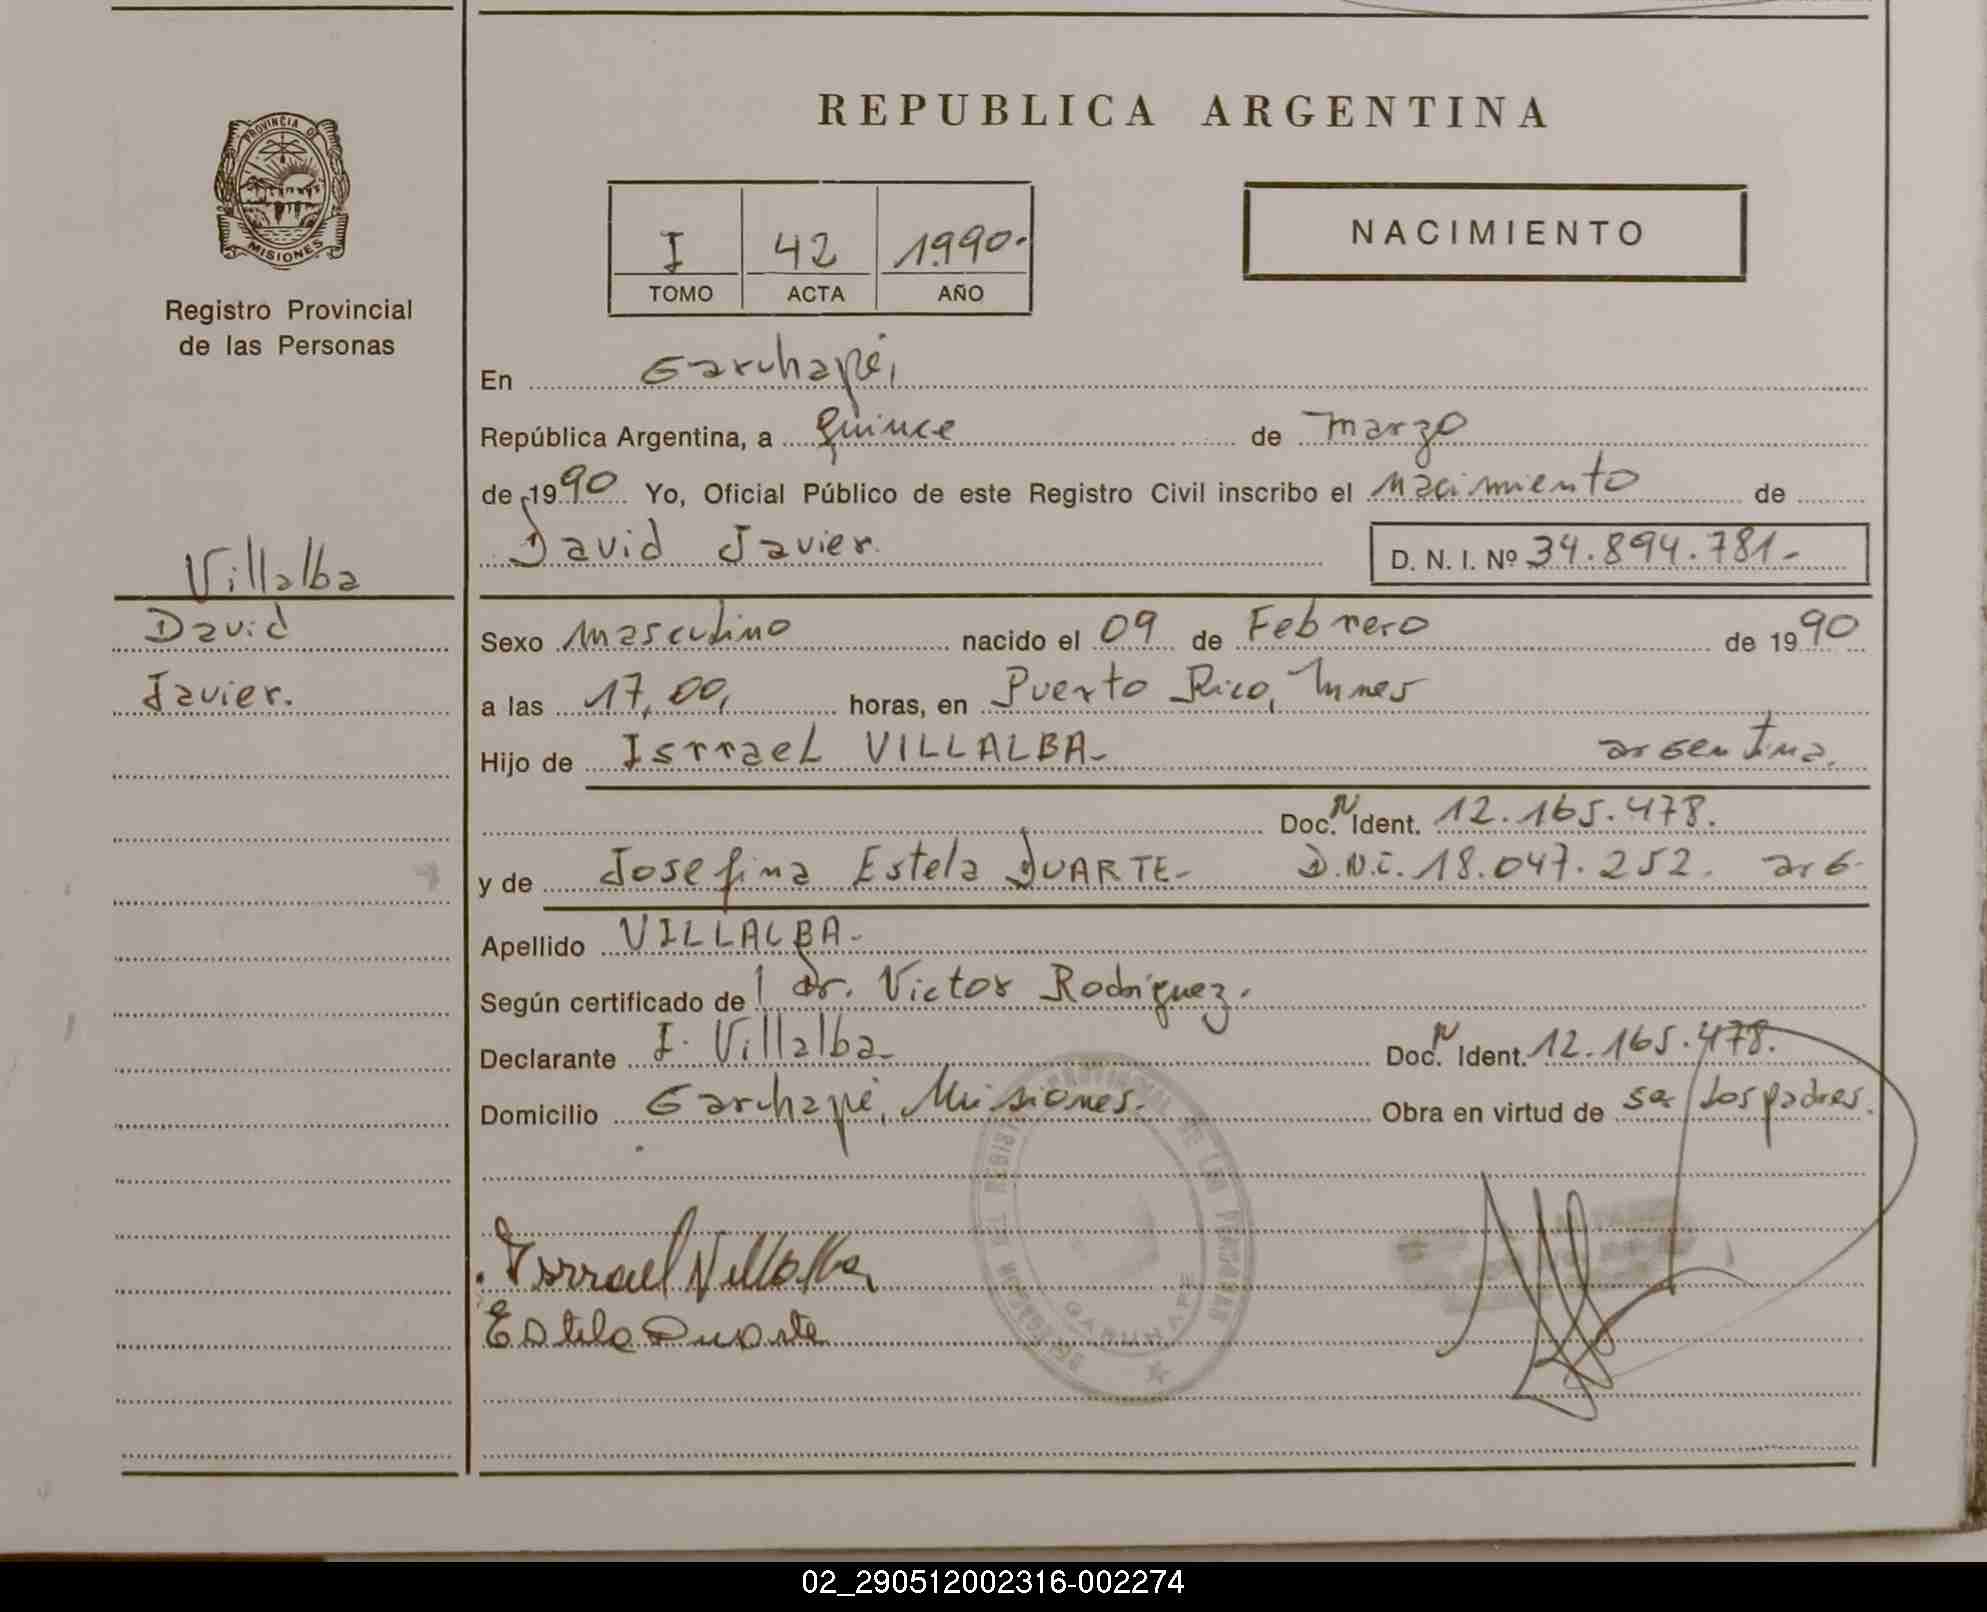 REPUBLICA ARGENTINA
PROVINCIA DE
MISIONES
Registro Provincial
de las Personas
I 42 1.990.
TOMO ACTA AÑO
NACIMIENTO
En Garuhapé,
República Argentina, a Quince de marzo
de 1990 Yo, Oficial Público de este Registro Civil inscribo el nacimiento de
David Javier. D. N. I. Nº 34.894.781.-
Villalba
David
Javier.
Sexo masculino nacido el 09 de Febrero de 1990
a las 17,00, horas, en Puerto Rico,
Hijo de Isrrael VILLALBA- argentina.
Doc. N Ident. 12.165.478.
y de Josefina Estela DUARTE- D.N.I. 18.047.252. arg.
Apellido VILLALBA-
Según certificado de Dr. Victor Rodriguez.
Declarante I. Villalba- Doc. N Ident. 12.165.478.
Domicilio Garuhapé, Misiones. Obra en virtud de ser los padres.
Isrrael Villalba
Estela Duarte
PROVINCIAL DE LAS PERSONAS
GARUHAPE
02_290512002316-002274